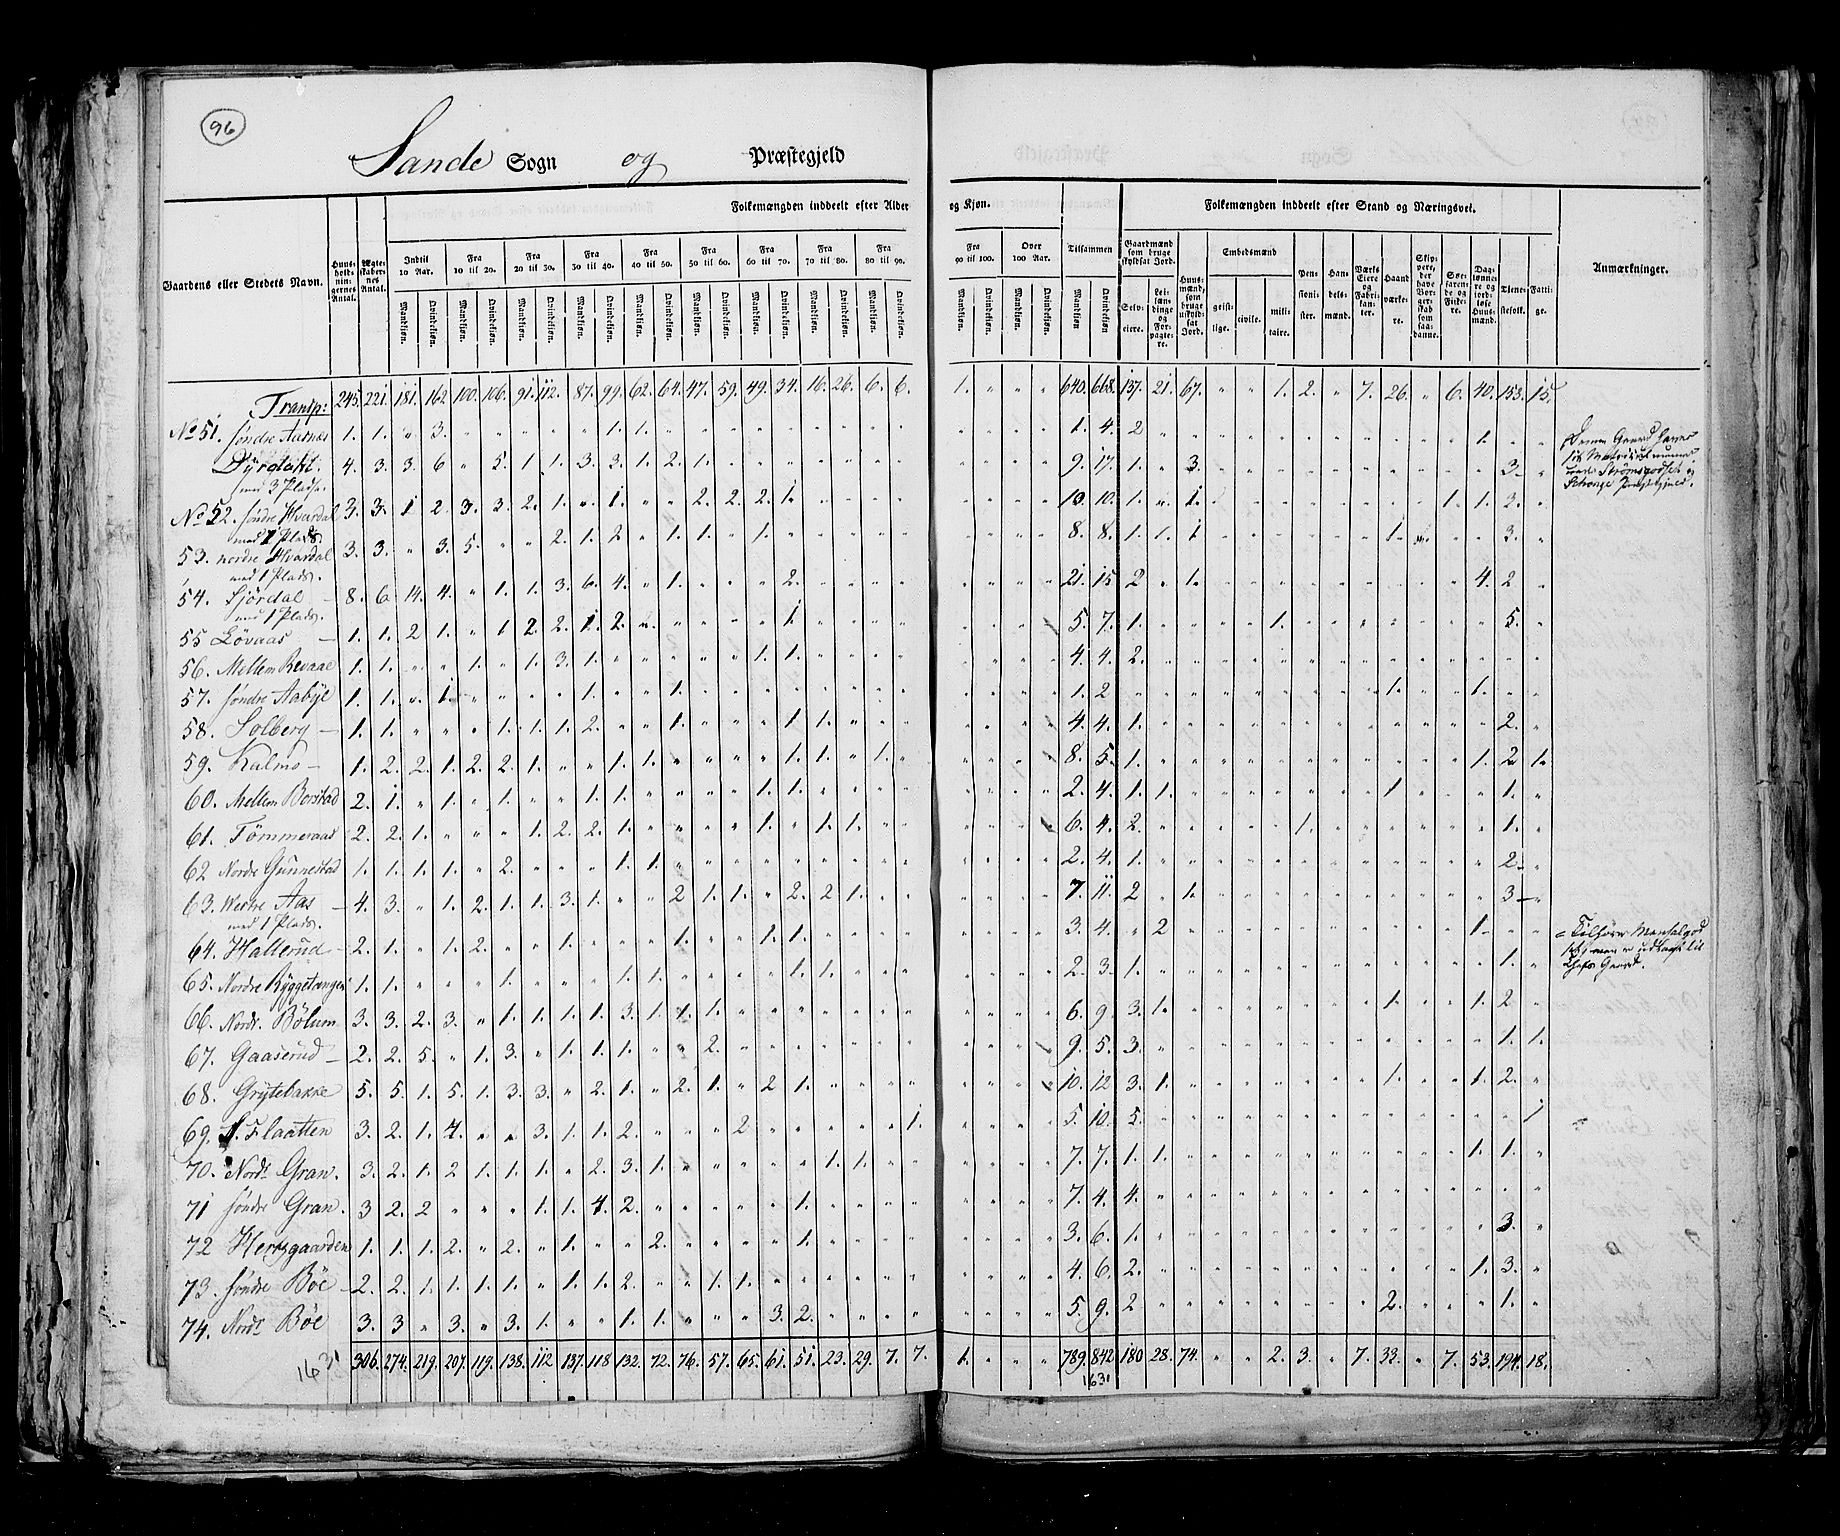 96
Sande Sogn og Præstegjeld
Folkemængden inddeelt efter Alder og Kjøn.
Folkemængden inddeelt efter Stand og Næringsvei.
Gaardens eller Stedets Navn.
Huus-holdnin-gernes Antal.
Ægte-skaber-nes Antal.
Indtil 10 Aar.
Fra 10 til 20.
Fra 20 til 30.
Fra 30 til 40.
Fra 40 til 50.
Fra 50 til 60.
Fra 60 til 70.
Fra 70 til 80.
Fra 80 til 90.
Fra 90 til 100.
Over 100 Aar.
Tilsammen
Mandkjøn. Qvindekjøn.
Gaardmænd som bruge skyldsat Jord.
Selv-eiere.
Lei-lændinge og For-pagte-re.
Huus-mænd, som bruge uskyld-sat Jord.
Embedsmænd
geist-lige.
civile.
mili-taire.
Pen-sioni-ster.
Han-dels-mænd.
Værks Eiere og Fabri-kan-ter.
Haand-værke-re.
Skip-pere, der have Bor-ger-skab som saa-danne.
Søe-farende og Fiske-re.
Dag-lønne-re og jord-løse Huus-mænd.
Tjene-stefolk.
Fatti-ge.
Anmærkninger.
Transp: 245. 221. 181. 162. 100. 106. 91. 112. 87. 99. 62. 64. 47. 59. 49. 34. 16. 26. 6. 6. 1. " " " 640. 668. 137. 21. 67. " " 1. 2. " 7. 26. " 6. 40. 153. 15.
No 51. søndre Aasnes 1. 1. " 3. 1. 1. 1. 4. 2 1.
Dyrdahl. 4. 3. 3. 6 " 5. 1. 1. 3. 3. 1. 2. 1. 9. 17. 1. " 3. 3
med 3 Pladse.
No 52. søndre Hvardal 3. 3. 1 2. 3. 3. 2. 1. " 1. " " 2. 2. 2. 1. 10. 10. 1. " 1. 1. 1. 2.
med 1 Plads.
53. nordre Hvardal 3. 3. " 3. 5. " " 2. 1. 2 " 1. 1. " 1. 8. 8. 1. 1. 1 1. 3.
med 1 Plads.
54. Fjørdal 8. 6 14. 4. " 1. 1. 3. 6. 4. " 1. " " " 2. 21. 15 2 " 1. 4. 2
med 1 Plads.
55 Løvaas 1. 1. 2 1. " 1 2. 2. 1. 2. 1. 5. 7. 1. 1. 5.
56. Mellem Revaae 1. 1. " " 1. " 1. 3. 1. 1. 1. 4. 4. 2.
57. søndre Aabye 1. 1. " 1. 1. " " 1. 1. 2 1. 1.
58. Solberg 1. 1. " " " 1. 1. 1. 2. " " 1. 1. 1. 4. 4. 1. 2.
59. Kalmo 1. 2. 2. 1. 2. 2. 1. " " 1. 1. 1. 1. " 1. 8. 5. 1. 1. 2 1.
60. Mellem Borstad 2. 1. " 1. " 1. " " 1. 1. 1. 1. 2. 4. 1. 1. 1 1.
61. Tømmeraas 2. 2. 1. " " " 1. 2. 2. 1. 1. " 1. 1. 6. 4. 2. 1. 1.
62 Nordre Gunnestad 1. 1. 1. 1. " 2. 1. 1. 2. 4. 1. 2
63. Westre Aas 4. 3. " 1. 2. 1. 1. 3. 1. " " 2 1. 1. " 2. 2 1. 7 11. 2 " 1. 3
med 1 Plads.
64. Hallerud 2. 1. " 1. 2. " " 1. 1. 1. 1. 3. 4. " 2 1.
65. Nordre Ryggetangen 1. 1. 1. " " 1. 1. 1. 2. 3. 1. 1.
66. Nordr. Bølum 3. 3. 2. 3. " 1. 1. 1. 1. 3. 1. 1. 1. 6. 9. 3. 1. 1. 1. 2
67. Gaaserud 2. 2. 5. " 1. 3. " 1. 1. 1. " " 2. 9. 5. 3. 1. 1.
68. Grytebakke 5. 5. 1. 5. 1. 3. 3. " 2. 1. " 2. 1. " 2 1. 10. 12 3. 1. 1. 1. 2.
69. S. Flaatten 3. 2. 1. 4. " " 3. 1. 1. 2. 2 1. 5. 10. 5. 1
70. Nordr Gran. 3. 2. 1. 2 1. 1. 1. " 2. 3. 1. 1. 1. 7. 7. 1. 1. 1. 1.
71 søndre Gran. 3 2. 2 " " " 1. 1. 4 2. 1. 7. 4. 4.
72 Hersgaarden 1. 1. 1. 2. " 2. " 1. " " 2. 1. 3. 6. 1. 3.
73. søndre Bøe 2. 2. 1. 1. 1. 1. " 1. 1. 2. " " 1. 1. 4. 6. 2. 1. 3.
74. Nordr Bøe 3. 3 " 3. " 3. 1. " " 1. 1. 3. 2. 5. 9. 2 2. 1.
1631 306. 274. 219. 207. 119. 138. 112 137. 118 132. 72. 76. 57. 65. 61. 51. 23. 29. 7. 7. 1. " " " 789. 842 180 28. 74. " " 2. 3. " 7. 33. " 7. 53. 194. 18.
1631